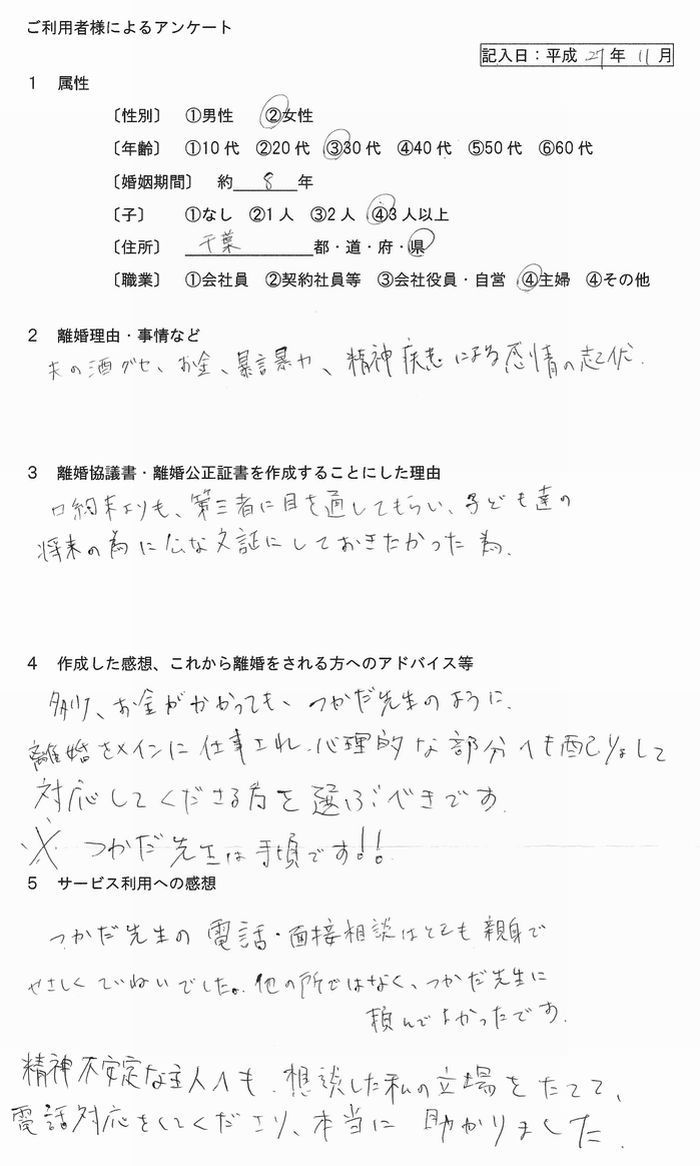 ご利用者様によるアンケート
記入日：平成 27年 11月
1 属性
〔性別〕 ①男性 ②女性
〔年齢〕 ①10代 ②20代 ③30代 ④40代 ⑤50代 ⑥60代
〔婚姻期間〕 約 8 年
〔子〕 ①なし ②1人 ③2人 ④3人以上
〔住所〕 千葉 都・道・府・県
〔職業〕 ①会社員 ②契約社員等 ③会社役員・自営 ④主婦 ④その他
2 離婚理由・事情など
夫の酒グセ、お金、暴言暴力、精神疾患による感情の起伏.
3 離婚協議書・離婚公正証書を作成することにした理由
口約束よりも、第三者に目を通してもらい、子ども達の
将来の為に公な文証にしておきたかった為.
4 作成した感想、これから離婚をされる方へのアドバイス等
多少、お金がかかっても、つかだ先生のように、
離婚をメインに仕事され、心理的な部分へも配りょして
対応してくださる方を選ぶべきです.
※ つかだ先生は手頃です!!
5 サービス利用への感想
つかだ先生の電話・面接相談はとても親身で
やさしくていねいでした。他の所ではなく、つかだ先生に
頼んでよかったです.
精神不安定な主人へも、相談した私の立場をたてて、
電話対応をしてくださり、本当に助かりました.